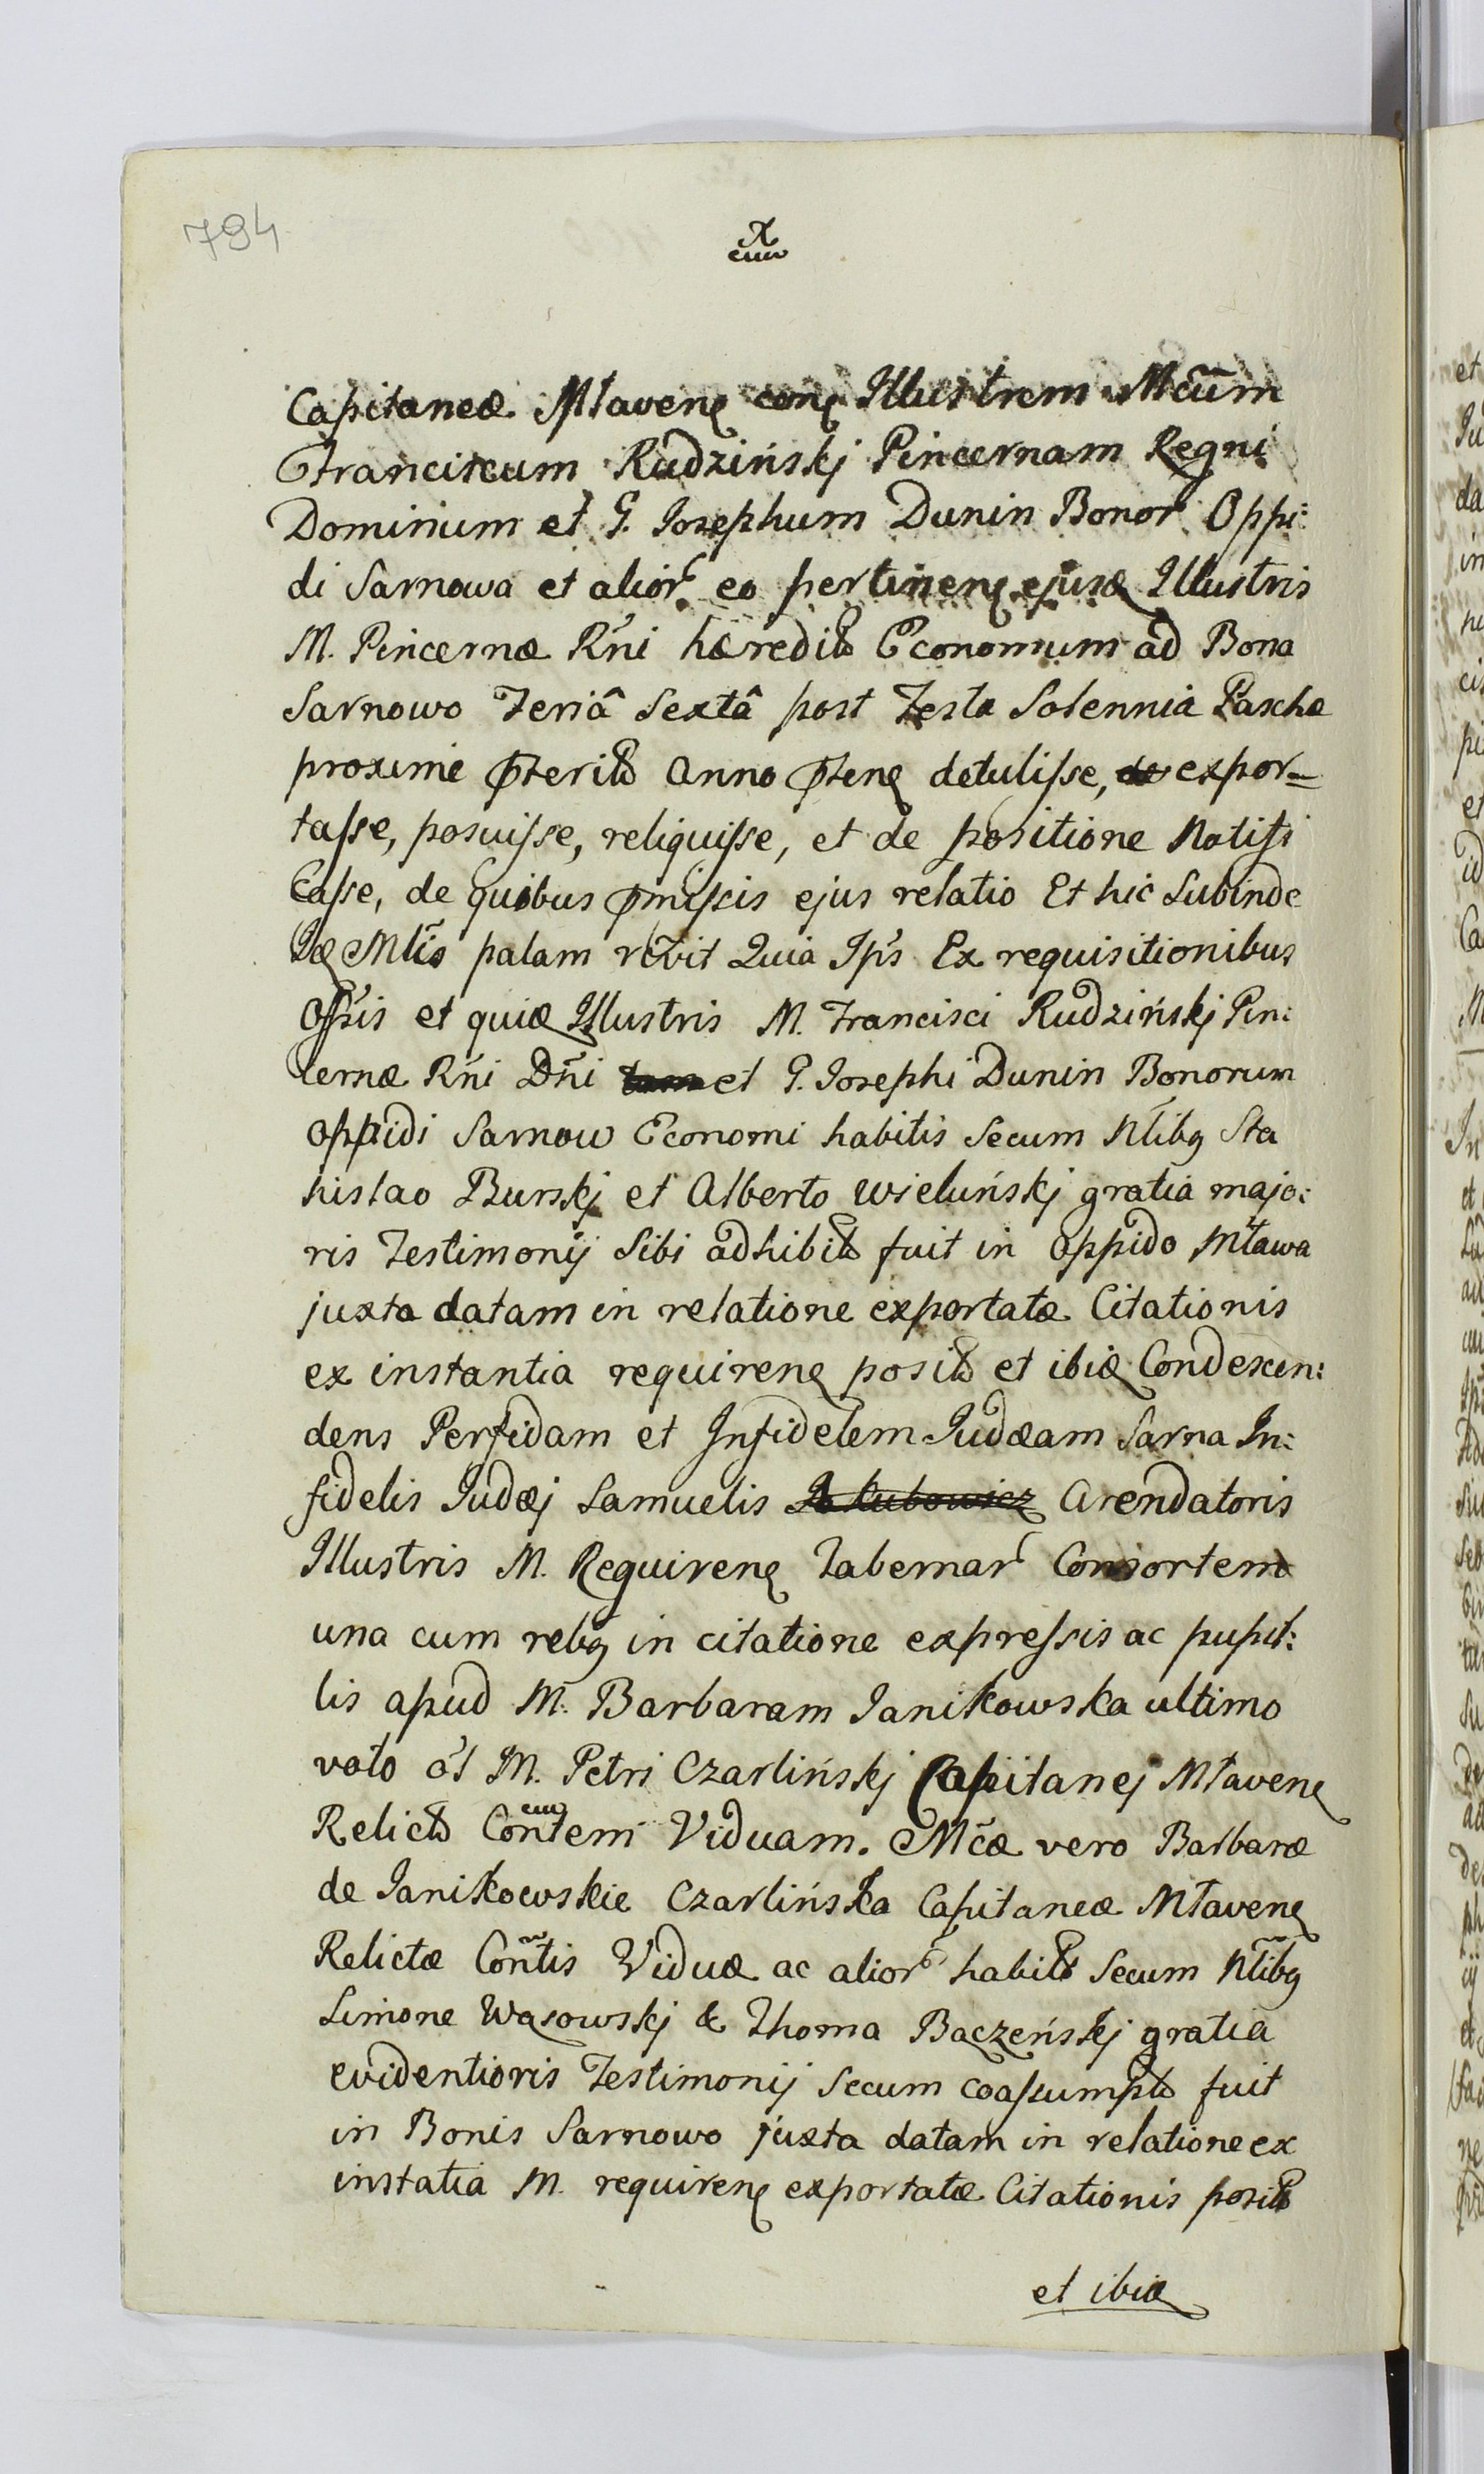 794
X
eius
Capitaneæ Mlaveñ cone Illustrem Mcum
Franciscum Rudzińskj Pincernam Regni
Dominum et G. Josephum Dunin Bonor Oppi:
di Sarnowa et alior eo pertineñ ejusd Illustris
M. Pincernæ Rñi hæredit Economum ad Bona
Sarnowo Feriâ Sextâ post Festa Solennia Paschæ
proxime præterit Anno præseñ detulisse, expor-
tasse, posuisse, reliquisse, et de positione Notifi
casse, de quibus præmissis ejus relatio Et hic Subinde
Id Mlis palam rcvit Quia Ips Ex requisitionibus
Offis et quid Illustris M. Francisci Rudzińskj Pin:
cernæ Rñi Dñi et G. Josephi Dunin Bonorum
oppidi Sarnow Economi habitis Secum Nlibq Sta
nislao Burskj et Alberto Wieluńskj gratia majo:
ris Testimonij Sibi adhibit fuit in Oppido Mlawa
juxta datam in relatione exportatæ Citationis
ex instantia requireñ posit et ibid Condescen:
dens Perfidam et Infidelem Judæam Sarna In:
fidelis Judæj Samuelis Jakubowicz Arendatoris
Illustris M. Requireñ Tabernar Consortem
una cum rebq in citatione expressis ac pupil:
lis apud M. Barbaram Janikowska ultimo
voto ol M. Petri Czarlińskj Capitanej Mlaveñ
Relict Contem Viduam. Mcæ vero Barbaræ
de Janikowskie Czarlińska Capitaneæ Mlaveñ
Relictæ Contis Viduæ ac alior habit Secum Nlibq
Simone Wąsowskj & Thoma Bączeńskj gratia
evidentioris Testimonij Secum coassumpt fuit
in Bonis Sarnowo juxta datam in relatione ex
instatia M. requireñ exportatæ Citationis posit
et ibid